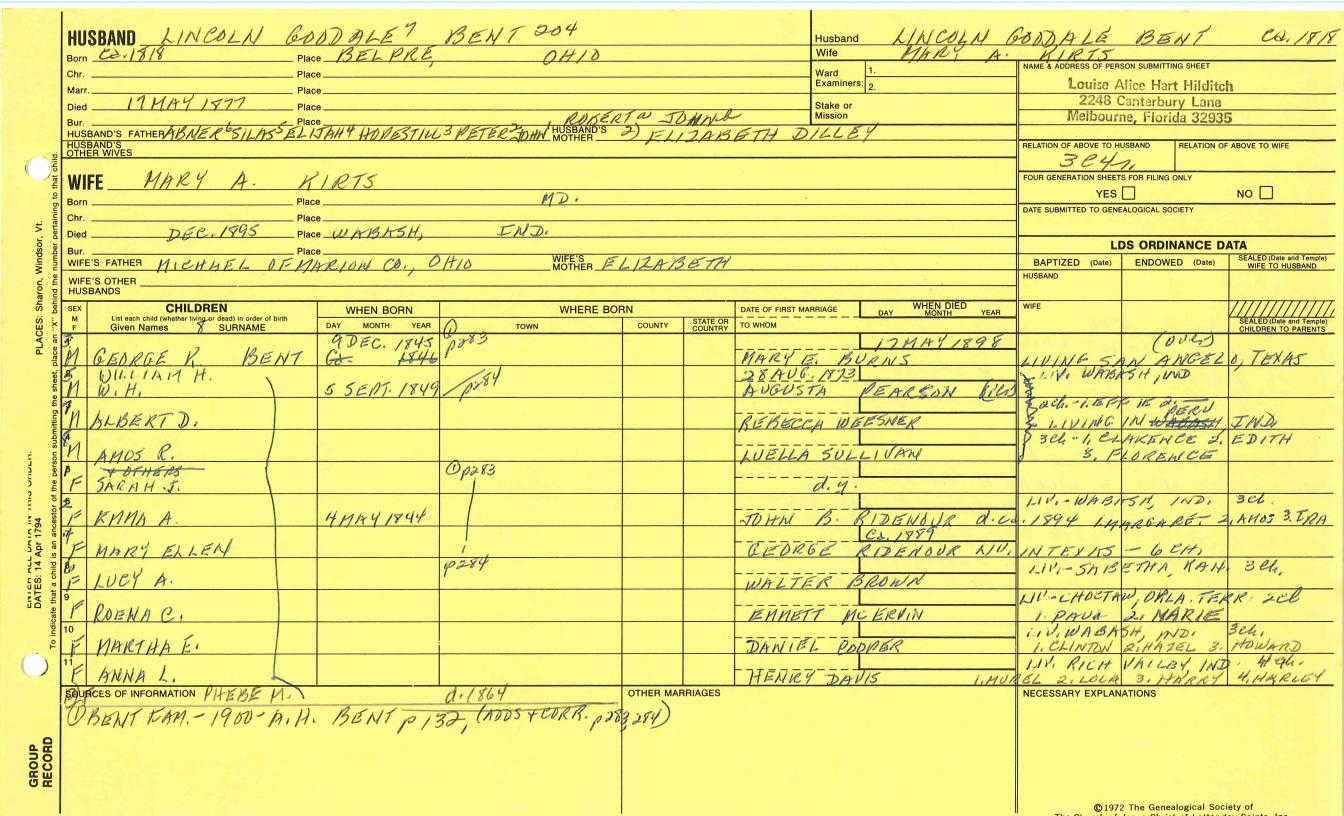 HUSBAND LINCOLN GOODALE 7 BENT 204
Born Ca. 1818 Place BELPRE, OHIO
Chr. Place
Marr. Place
Died 17 MAY 1877 Place
Bur. Place
HUSBAND'S FATHER ABNER 6 SILAS 5 ELIJAH 4 HOPESTILL 3 PETER 2 JOHN 1, ROBERT JOHN HUSBAND'S MOTHER 2) ELIZABETH DILLEY
HUSBAND'S OTHER WIVES
Husband LINCOLN GOODALE BENT Ca. 1818
Wife MARY A. KIRTS
Ward 1.
Examiners: 2.
Stake or Mission
NAME & ADDRESS OF PERSON SUBMITTING SHEET
Louise Alice Hart Hilditch
2248 Canterbury Lane
Melbourne, Florida 32935
RELATION OF ABOVE TO HUSBAND RELATION OF ABOVE TO WIFE
3C4r
FOUR GENERATION SHEETS FOR FILING ONLY
YES NO
DATE SUBMITTED TO GENEALOGICAL SOCIETY
WIFE MARY A. KIRTS
Born Place MD.
Chr. Place
Died DEC. 1895 Place WABASH, IND.
Bur. Place
WIFE'S FATHER MICHAEL OF MARION CO., OHIO WIFE'S MOTHER ELIZABETH
WIFE'S OTHER HUSBANDS
LDS ORDINANCE DATA
BAPTIZED (Date) ENDOWED (Date) SEALED (Date and Temple) WIFE TO HUSBAND
HUSBAND
WIFE
SEALED (Date and Temple) CHILDREN TO PARENTS
SEX M F
CHILDREN
List each child (whether living or dead) in order of birth
Given Names 8 SURNAME
WHEN BORN DAY MONTH YEAR
WHERE BORN TOWN COUNTY STATE OR COUNTRY
DATE OF FIRST MARRIAGE TO WHOM
WHEN DIED DAY MONTH YEAR
9 DEC. 1845 ① p283 17 MAY 1898
M GEORGE R. BENT Ca. 1846 MARY E. BURNS LIVING SAN ANGELO, TEXAS
5 WILLIAM H. 28 AUG. 1873 LIV. WABASH, IND
M W.H. 5 SEPT. 1849 p284 AUGUSTA PEARSON
2ch.-1. EFFIE 2. PERU
M ALBERT D. REBECCA WEESNER LIVING IN WABASH, IND
3ch-1. CLARENCE 2. EDITH
M AMOS R. LUELLA SULLIVAN 3. FLORENCE
& OTHERS ① p283
F SARAH J. d.y.
LIV.-WABASH, IND. 3ch.
F EMMA A. 4 MAY 1844 JOHN B. RIDENOUR d.ca. 1894 1. MARGARET 2. AMOS 3. IRA
Ca. 1889
F MARY ELLEN GEORGE RIDENOUR LIV. IN TEXAS - 6 CH.
p284 LIV.-SABETHA, KAN. 3ch.
F LUCY A. WALTER BROWN
9 LIV-CHOCTAW, OKLA. TERR. 2ch
F ROENA C. EMMETT McERVIN 1. PAUL 2. MARIE
10 LIV. WABASH, IND. 3ch.
F MARTHA E. DANIEL COOPER 1. CLINTON 2. HAZEL 3. HOWARD
11 LIV. RICH VALLEY, IND. 4ch.
F ANNA L. HENRY DAVIS 1. MUREL 2. LOLA 3. HARRY 4. HARLEY
SOURCES OF INFORMATION PHEBE M. d. 1864
① BENT FAM.-1900-A.H. BENT p132, (ADDS & CORR. p283, 284)
OTHER MARRIAGES
NECESSARY EXPLANATIONS
©1972 The Genealogical Society of
PLACES: Sharon, Windsor, Vt.
DATES: 14 Apr 1794
To indicate that a child is an ancestor of the person submitting the sheet, place an "X" behind the number pertaining to that child.
GROUP RECORD